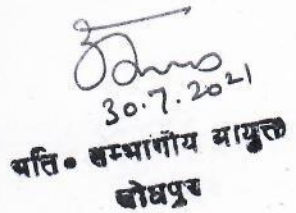 30.7.2021
अति० सम्भागीय आयुक्त
जोधपुर